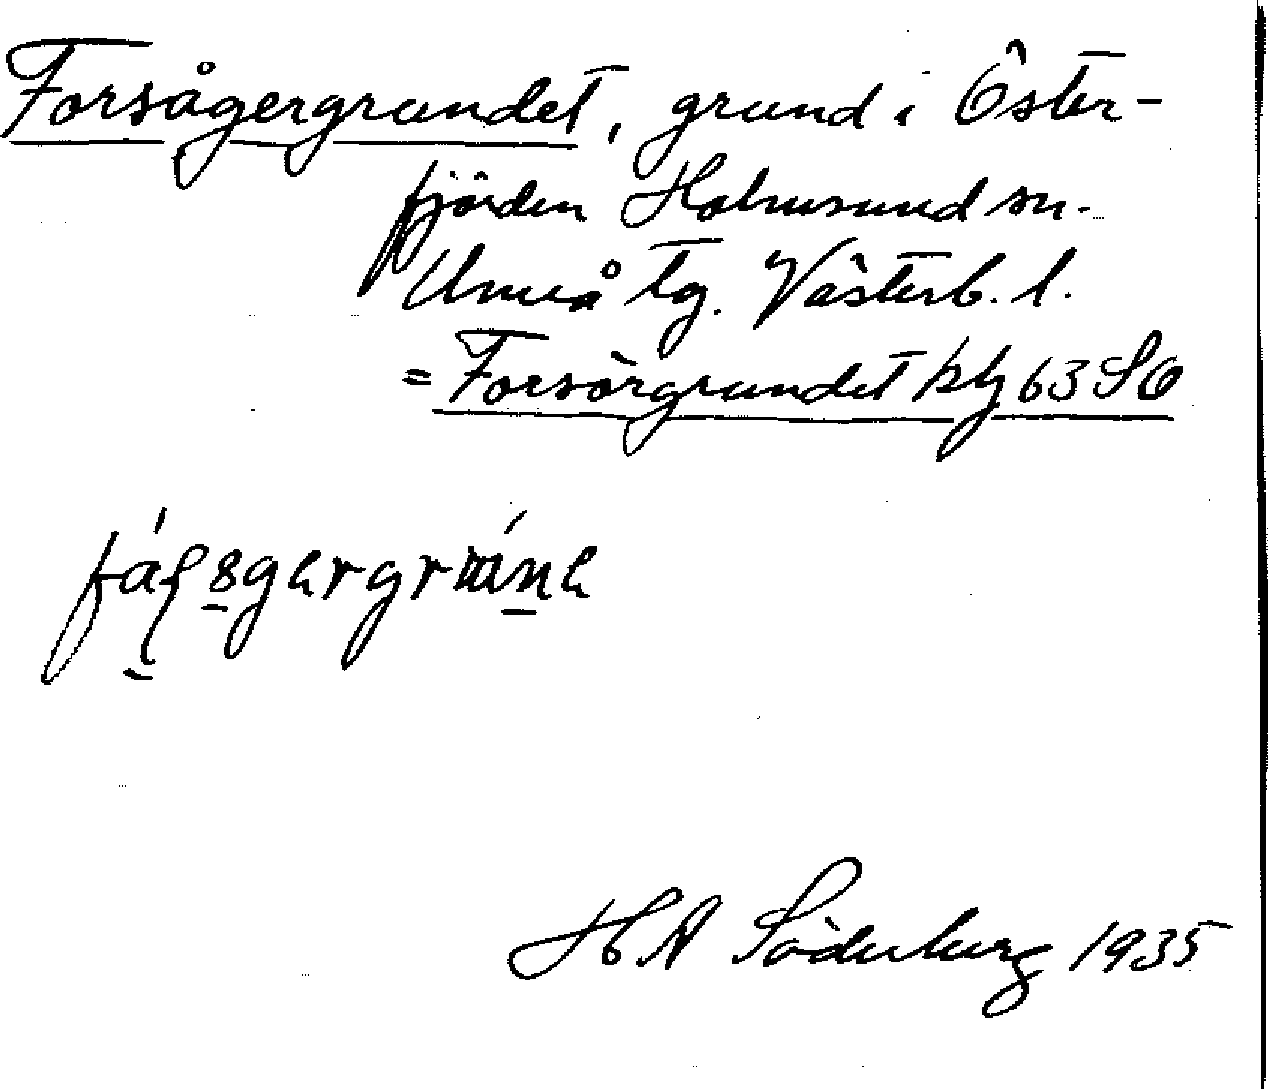 Forsågergrundet, grund i Öster-
fjärden Holmsund sn.
Umeå tg. Västerb. l.
= Forsörgrundet blj 63 SO
H A Söderberg 1935